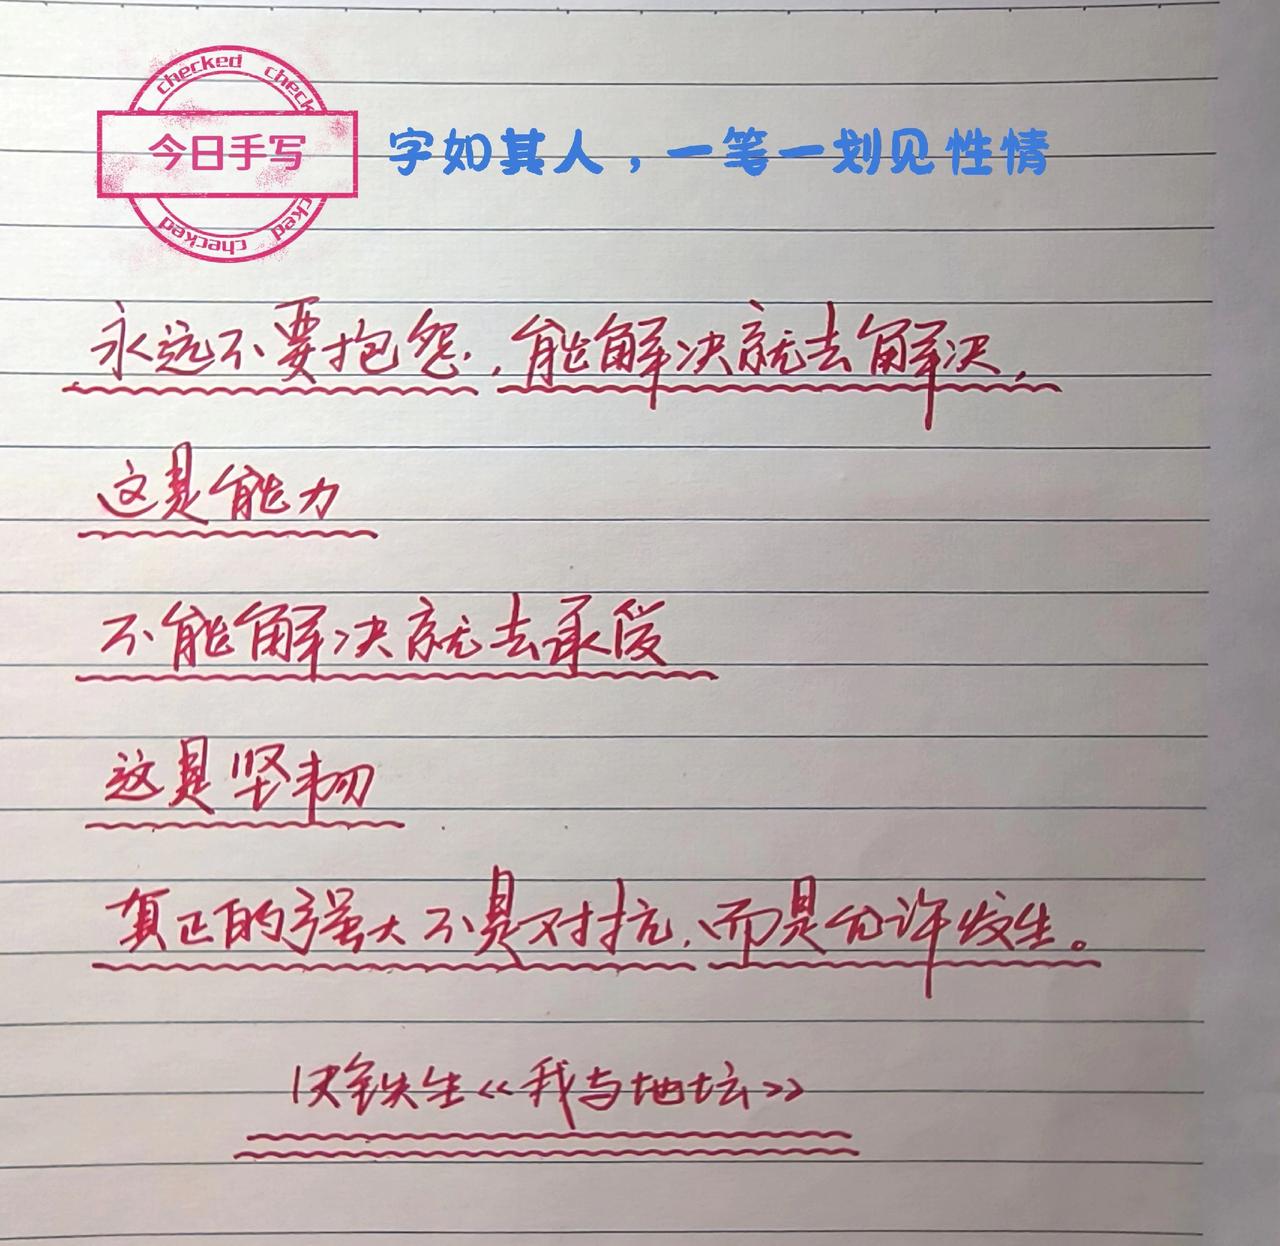 checked check
今日手写
cked checked
字如其人，一笔一划见性情
永远不要抱怨，能解决就去解决，
这是能力
不能解决就去承受
这是坚韧
真正的强大不是对抗，而是允许发生。
史铁生《我与地坛》